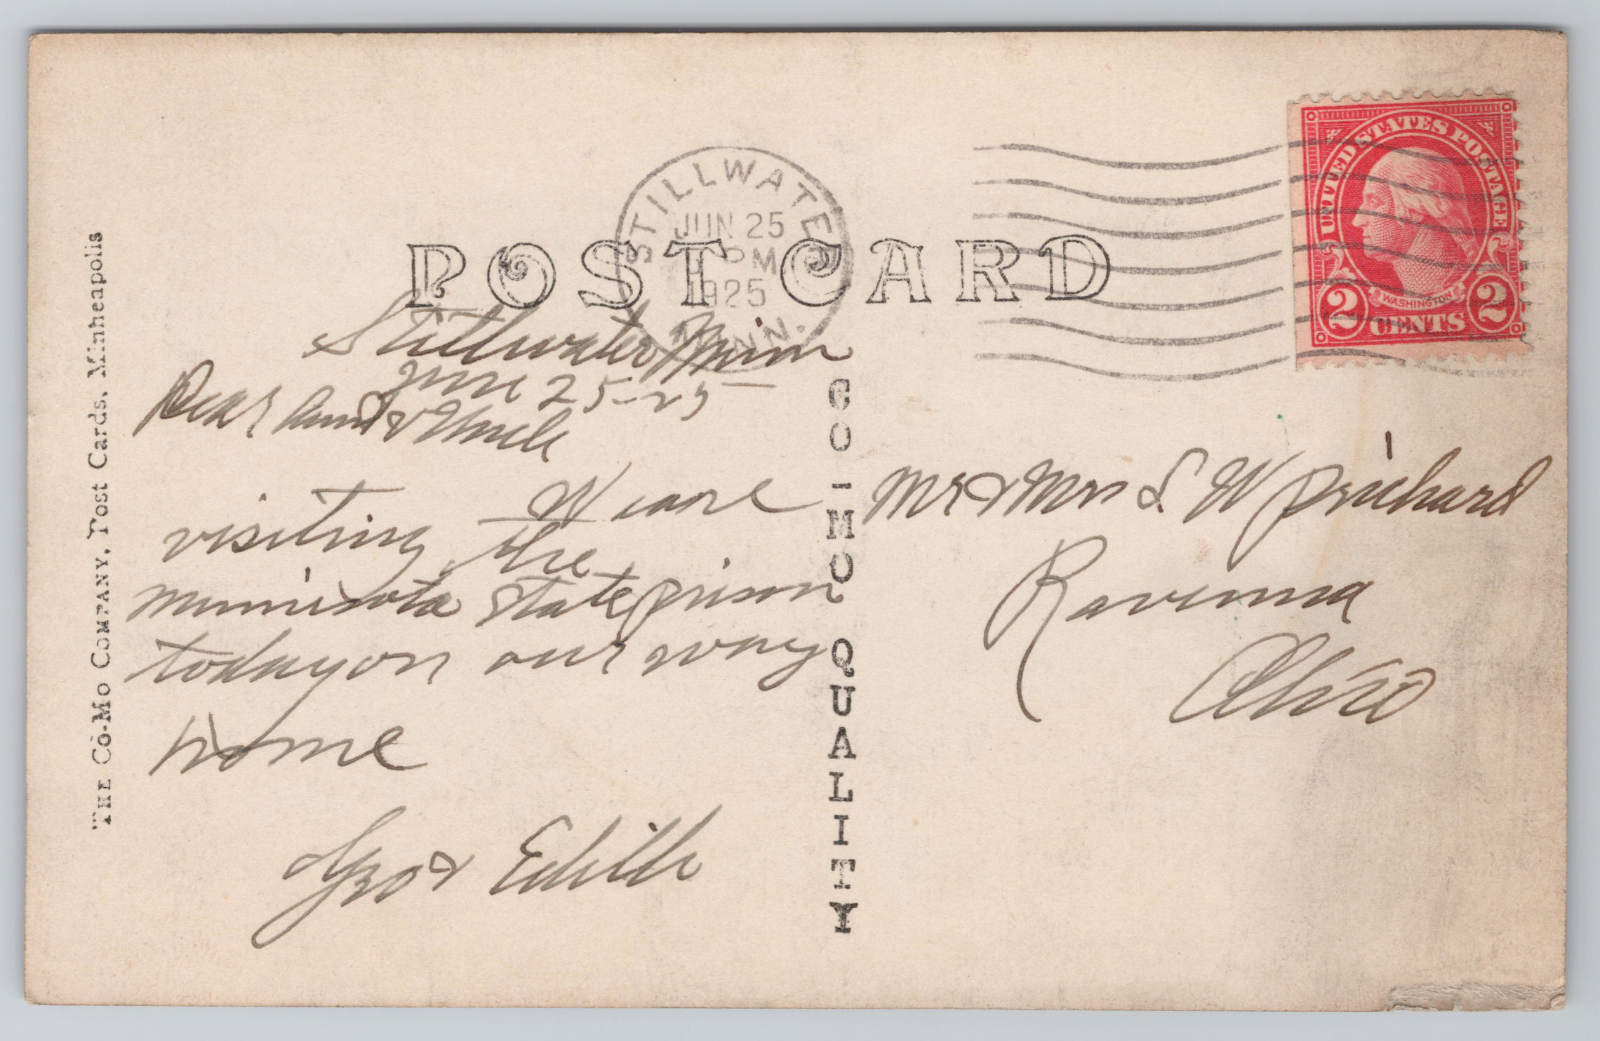 THE CO-MO COMPANY, Post Cards, Minneapolis
POST CARD
STILLWATER
JUN 25
PM
1925
MINN.
UNITED STATES POSTAGE
WASHINGTON
2 CENTS 2
Stillwater Minn
June 25-25
Dear Aunt & Uncle
We are
visiting the
minnesota state prison
today on our way
home
Geo & Edith
CO-MO QUALITY
Mr & Mrs S W Prichard
Ravenna
Ohio